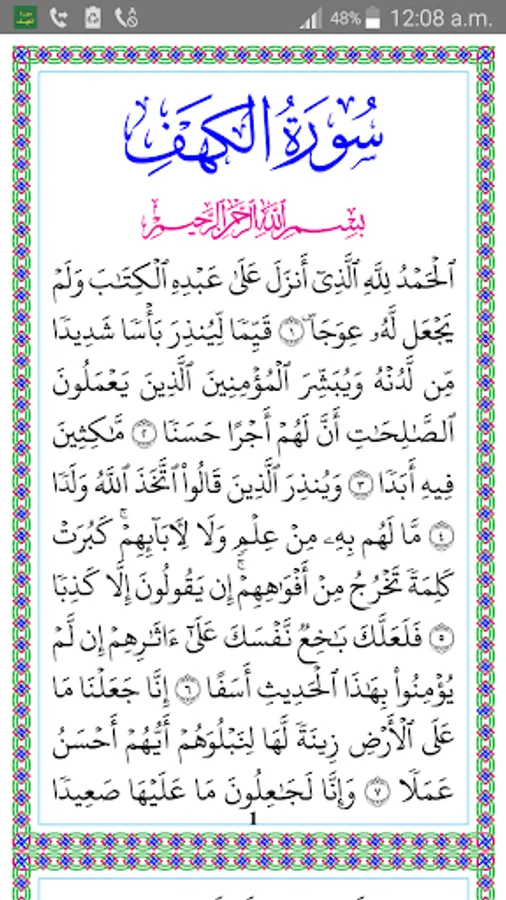 48% 12:08 a.m.
سُورَةُ الكَهْفِ
بِسْمِ ٱللَّهِ ٱلرَّحْمَٰنِ ٱلرَّحِيمِ
ٱلْحَمْدُ لِلَّهِ ٱلَّذِىٓ أَنزَلَ عَلَىٰ عَبْدِهِ ٱلْكِتَٰبَ وَلَمْ
يَجْعَل لَّهُۥ عِوَجَاۜ ١ قَيِّمًا لِّيُنذِرَ بَأْسًا شَدِيدًا
مِّن لَّدُنْهُ وَيُبَشِّرَ ٱلْمُؤْمِنِينَ ٱلَّذِينَ يَعْمَلُونَ
ٱلصَّٰلِحَٰتِ أَنَّ لَهُمْ أَجْرًا حَسَنًا ٢ مَّٰكِثِينَ
فِيهِ أَبَدًا ٣ وَيُنذِرَ ٱلَّذِينَ قَالُوا۟ ٱتَّخَذَ ٱللَّهُ وَلَدًا
٤ مَّا لَهُم بِهِۦ مِنْ عِلْمٍ وَلَا لِءَابَآئِهِمْ ۚ كَبُرَتْ
كَلِمَةً تَخْرُجُ مِنْ أَفْوَٰهِهِمْ ۚ إِن يَقُولُونَ إِلَّا كَذِبًا
٥ فَلَعَلَّكَ بَٰخِعٌ نَّفْسَكَ عَلَىٰٓ ءَاثَٰرِهِمْ إِن لَّمْ
يُؤْمِنُوا۟ بِهَٰذَا ٱلْحَدِيثِ أَسَفًا ٦ إِنَّا جَعَلْنَا مَا
عَلَى ٱلْأَرْضِ زِينَةً لَّهَا لِنَبْلُوَهُمْ أَيُّهُمْ أَحْسَنُ
عَمَلًا ٧ وَإِنَّا لَجَٰعِلُونَ مَا عَلَيْهَا صَعِيدًا
1